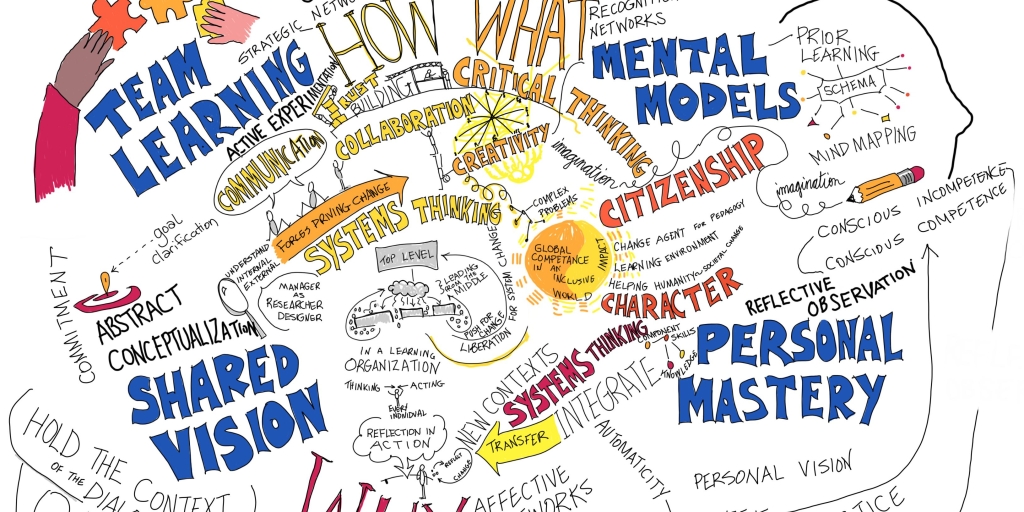 STRATEGIC
HOW
WHAT
RECOGNITION
NETWORKS
TEAM
LEARNING
ACTIVE EXPERIMENTATION
TRUST
BUILDING
COLLABORATION
COMMUNICATION
CRITICAL THINKING
CREATIVITY
imagination
MENTAL
MODELS
PRIOR
LEARNING
SCHEMA
MIND MAPPING
imagination
CITIZENSHIP
CONSCIOUS INCOMPETENCE
CONSCIOUS COMPETENCE
COMPLEX
PROBLEMS
GLOBAL
COMPETENCE
IN AN
INCLUSIVE
WORLD
IMPACT
CHANGE AGENT FOR PEDAGOGY
LEARNING ENVIRONMENT
HELPING HUMANITY
SOCIETAL CHANGE
CHARACTER
FORCES DRIVING CHANGE
SYSTEMS THINKING
UNDERSTAND
INTERNAL
EXTERNAL
goal
clarification
COMMITMENT
ABSTRACT
CONCEPTUALIZATION
MANAGER
AS
RESEARCHER
DESIGNER
TOP LEVEL
LEADING
FROM THE
MIDDLE
PUSH FOR
CHANGE
LIBERATION
FOR SYSTEM CHANGE
IN A LEARNING
ORGANIZATION
THINKING
ACTING
EVERY
INDIVIDUAL
REFLECTION IN
ACTION
DO
REFLECT
CHANGE
SHARED
VISION
HOLD THE
CONTEXT
OF THE
NEW CONTEXTS
SYSTEMS THINKING
INTEGRATE
COMPONENT
SKILLS
KNOWLEDGE
TRANSFER
AUTOMATICITY
REFLECTIVE
OBSERVATION
PERSONAL
MASTERY
PERSONAL VISION
WHY
AFFECTIVE